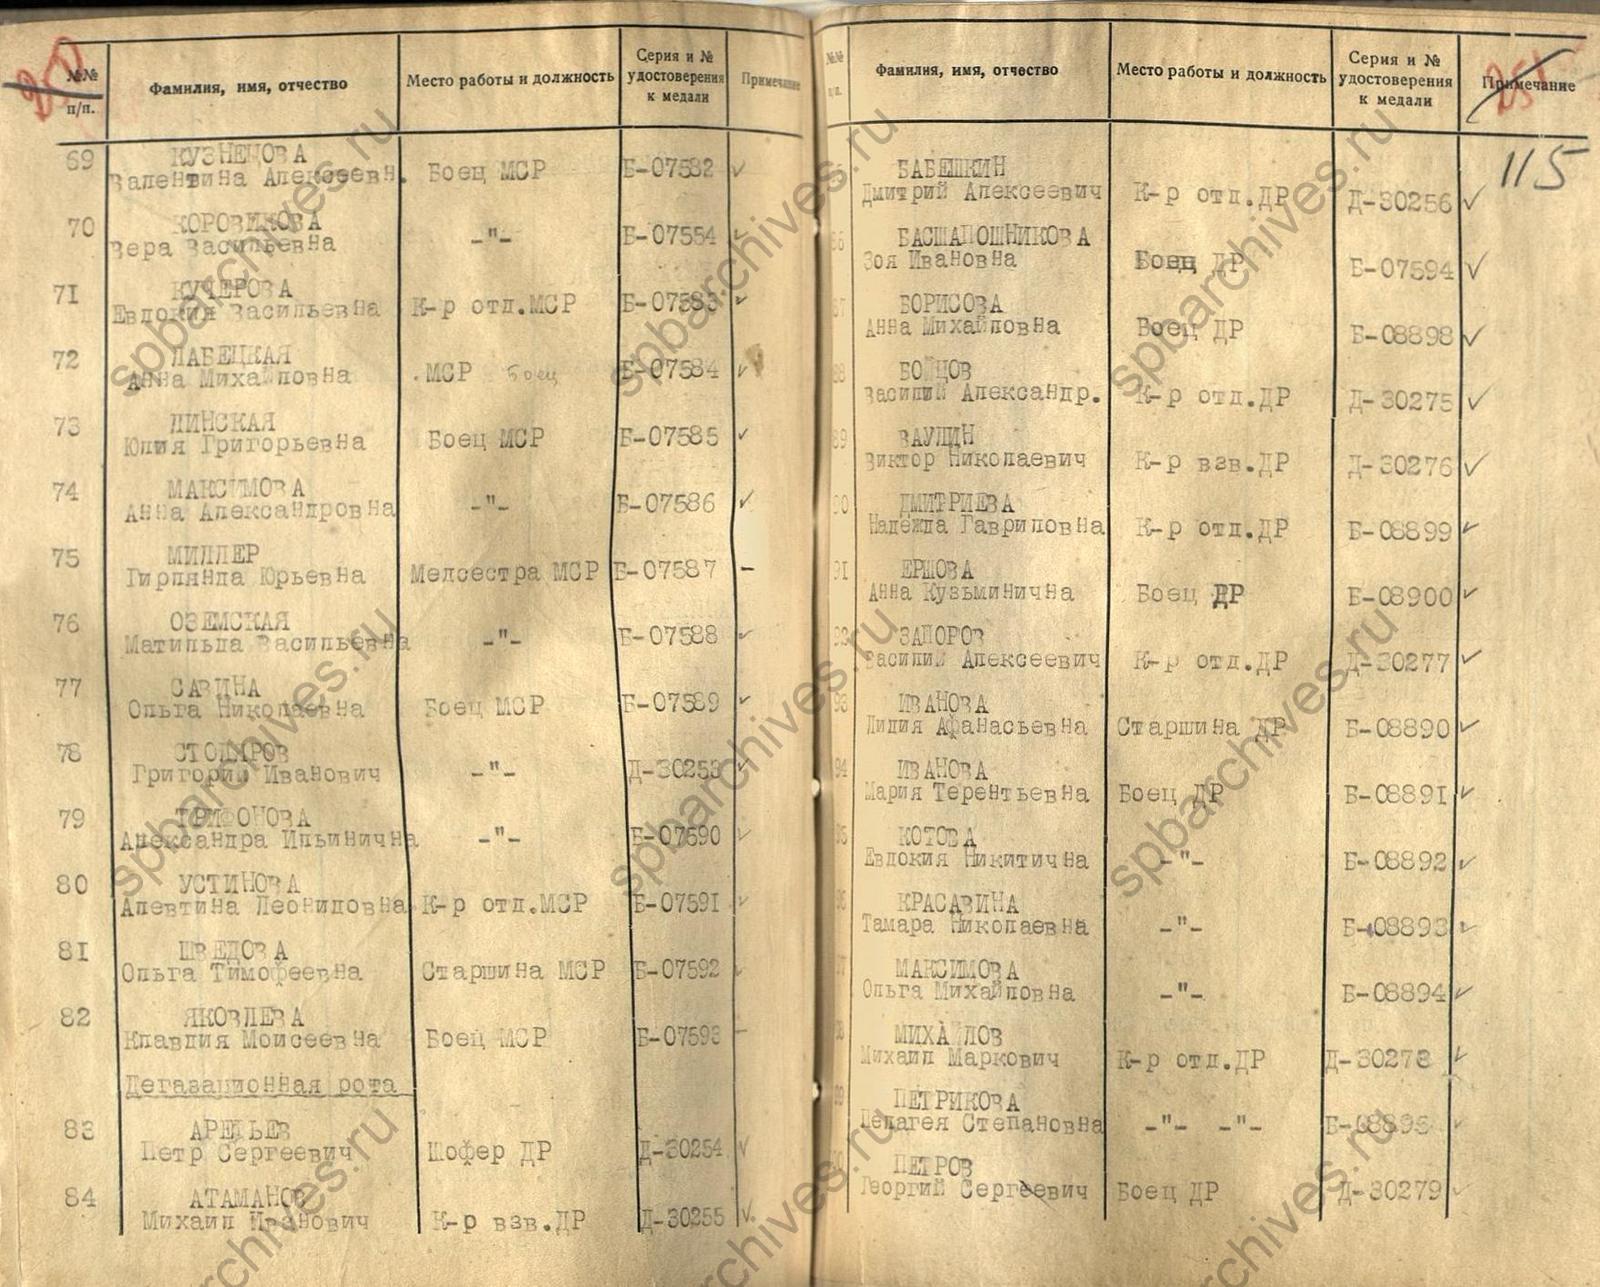 №№ п/п.
Фамилия, имя, отчество
Место работы и должность
Серия и № удостоверения к медали
Примечание
69 КУЗНЕЦОВА
Валентина Алексеевн. Боец МСР Б-07582
70 КОРОВИКОВА
Вера Васильевна -"- Б-07554
71 КУЧЕРОВА
Евдокия Васильевна К-р отд.МСР Б-07583
72 ЛАБЕЦКАЯ
Анна Михайловна .МСР боец Б-07584
73 ЛИНСКАЯ
Юлия Григорьевна Боец МСР Б-07585
74 МАКСИМОВА
Анна Александровна -"- Б-07586
75 МИЛЛЕР
Гирлянда Юрьевна Медсестра МСР Б-07587 -
76 ОЗЕМСКАЯ
Матильда Васильевна -"- Б-07588
77 САВИНА
Ольга Николаевна Боец МСР Б-07589
78 СТОЛЯРОВ
Григорий Иванович -"- Д-30253
79 ТРИФОНОВА
Александра Ильинична -"- Б-07590
80 УСТИНОВА
Алевтина Леонидовна К-р отд.МСР Б-07591
81 ШВЕДОВА
Ольга Тимофеевна Старшина МСР Б-07592
82 ЯКОВЛЕВА
Клавдия Моисеевна Боец МСР Б-07593 -
Дегазационная рота
83 АРЕДЬЕВ
Петр Сергеевич Шофер ДР Д-30254
84 АТАМАНОВ
Михаил Иванович К-р взв.ДР Д-30255
№№ п/п.
Фамилия, имя, отчество
Место работы и должность
Серия и № удостоверения к медали
Примечание
251
115
БАБЕШКИН
Дмитрий Алексеевич К-р отд.ДР Д-30256
86 БАСШАПОШНИКОВА
Зоя Ивановна Боец ДР Б-07594
87 БОРИСОВА
Анна Михайловна Боец ДР Б-08898
88 БОЙЦОВ
Василий Александр. К-р отд.ДР Д-30275
89 ВАУЛИН
Виктор Николаевич К-р взв.ДР Д-30276
90 ДМИТРИЕВА
Надежда Гавриловна К-р отд.ДР Б-08899
91 ЕРШОВА
Анна Кузьминична Боец ДР Б-08900
92 ЗАПОРОВ
Василий Алексеевич К-р отд.ДР Д-30277
93 ИВАНОВА
Лидия Афанасьевна Старшина ДР Б-08890
94 ИВАНОВА
Мария Терентьевна Боец ДР Б-08891
95 КОТОВА
Евдокия Никитична -"- Б-08892
96 КРАСАВИНА
Тамара Николаевна -"- Б-08893
МАКСИМОВА
Ольга Михайловна -"- Б-08894
МИХАЙЛОВ
Михаил Маркович К-р отд.ДР Д-30278
ПЕТРИКОВА
Пелагея Степановна -"- -"- Б-08895
ПЕТРОВ
Георгий Сергеевич Боец ДР Д-30279
spbarchives.ru